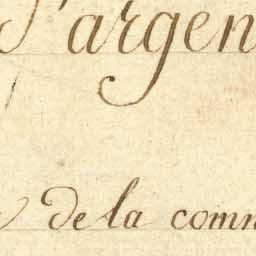 d'argen
de la comm